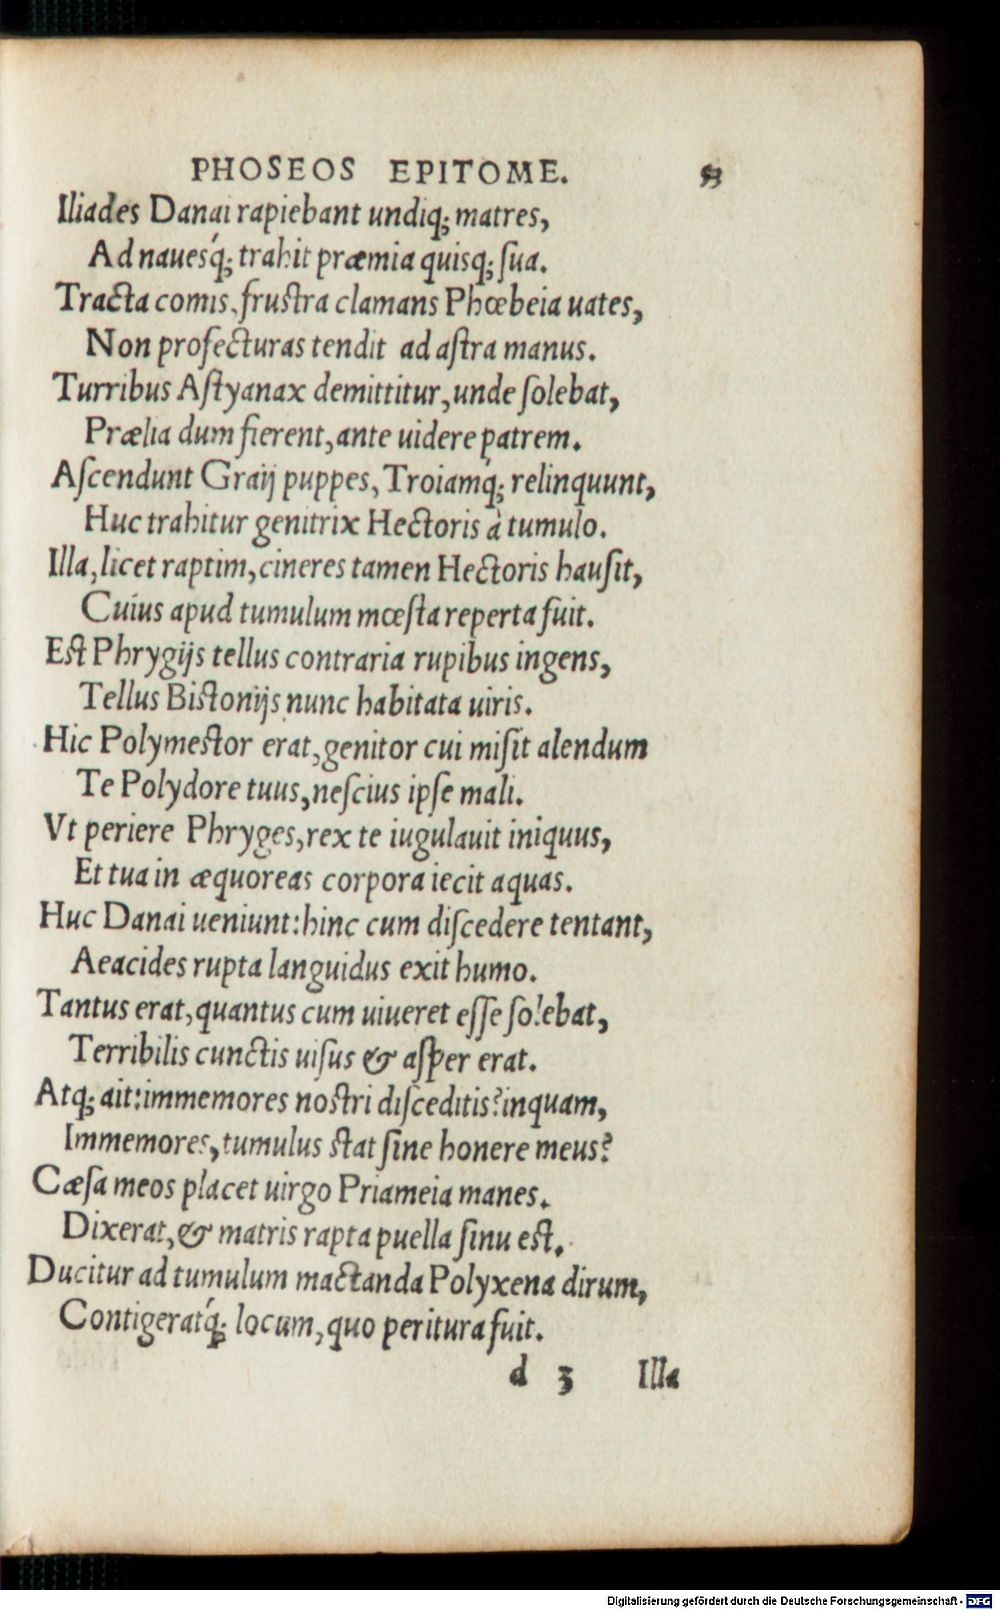 PHOSEOS EPITOME. 53
Iliades Danai rapiebant undiq; matres,
Ad nauesq́; trahit præmia quisq; ſua.
Tracta comis, fruſtra clamans Phœbeia uates,
Non profecturas tendit ad aſtra manus.
Turribus Aſtyanax demittitur, unde ſolebat,
Prælia dum fierent, ante uidere patrem.
Aſcendunt Graij puppes, Troiamq́; relinquunt,
Huc trahitur genitrix Hectoris à tumulo.
Illa, licet raptim, cineres tamen Hectoris hauſit,
Cuius apud tumulum mœſta reperta fuit.
Eſt Phrygijs tellus contraria rupibus ingens,
Tellus Biſtonijs nunc habitata uiris.
Hic Polymeſtor erat, genitor cui miſit alendum
Te Polydore tuus, neſcius ipſe mali.
Vt periere Phryges, rex te iugulauit iniquus,
Et tua in æquoreas corpora iecit aquas.
Huc Danai ueniunt: hinc cum diſcedere tentant,
Aeacides rupta languidus exit humo.
Tantus erat, quantus cum uiueret eſſe ſolebat,
Terribilis cunctis uiſus & aſper erat.
Atq; ait: immemores noſtri diſceditis? inquam,
Immemores, tumulus ſtat ſine honere meus?
Cæſa meos placet uirgo Priameia manes.
Dixerat, & matris rapta puella ſinu eſt.
Ducitur ad tumulum mactanda Polyxena dirum,
Contigeratq́; locum, quo peritura fuit.
d 3 Illa
Digitalisierung gefördert durch die Deutsche Forschungsgemeinschaft - DFG